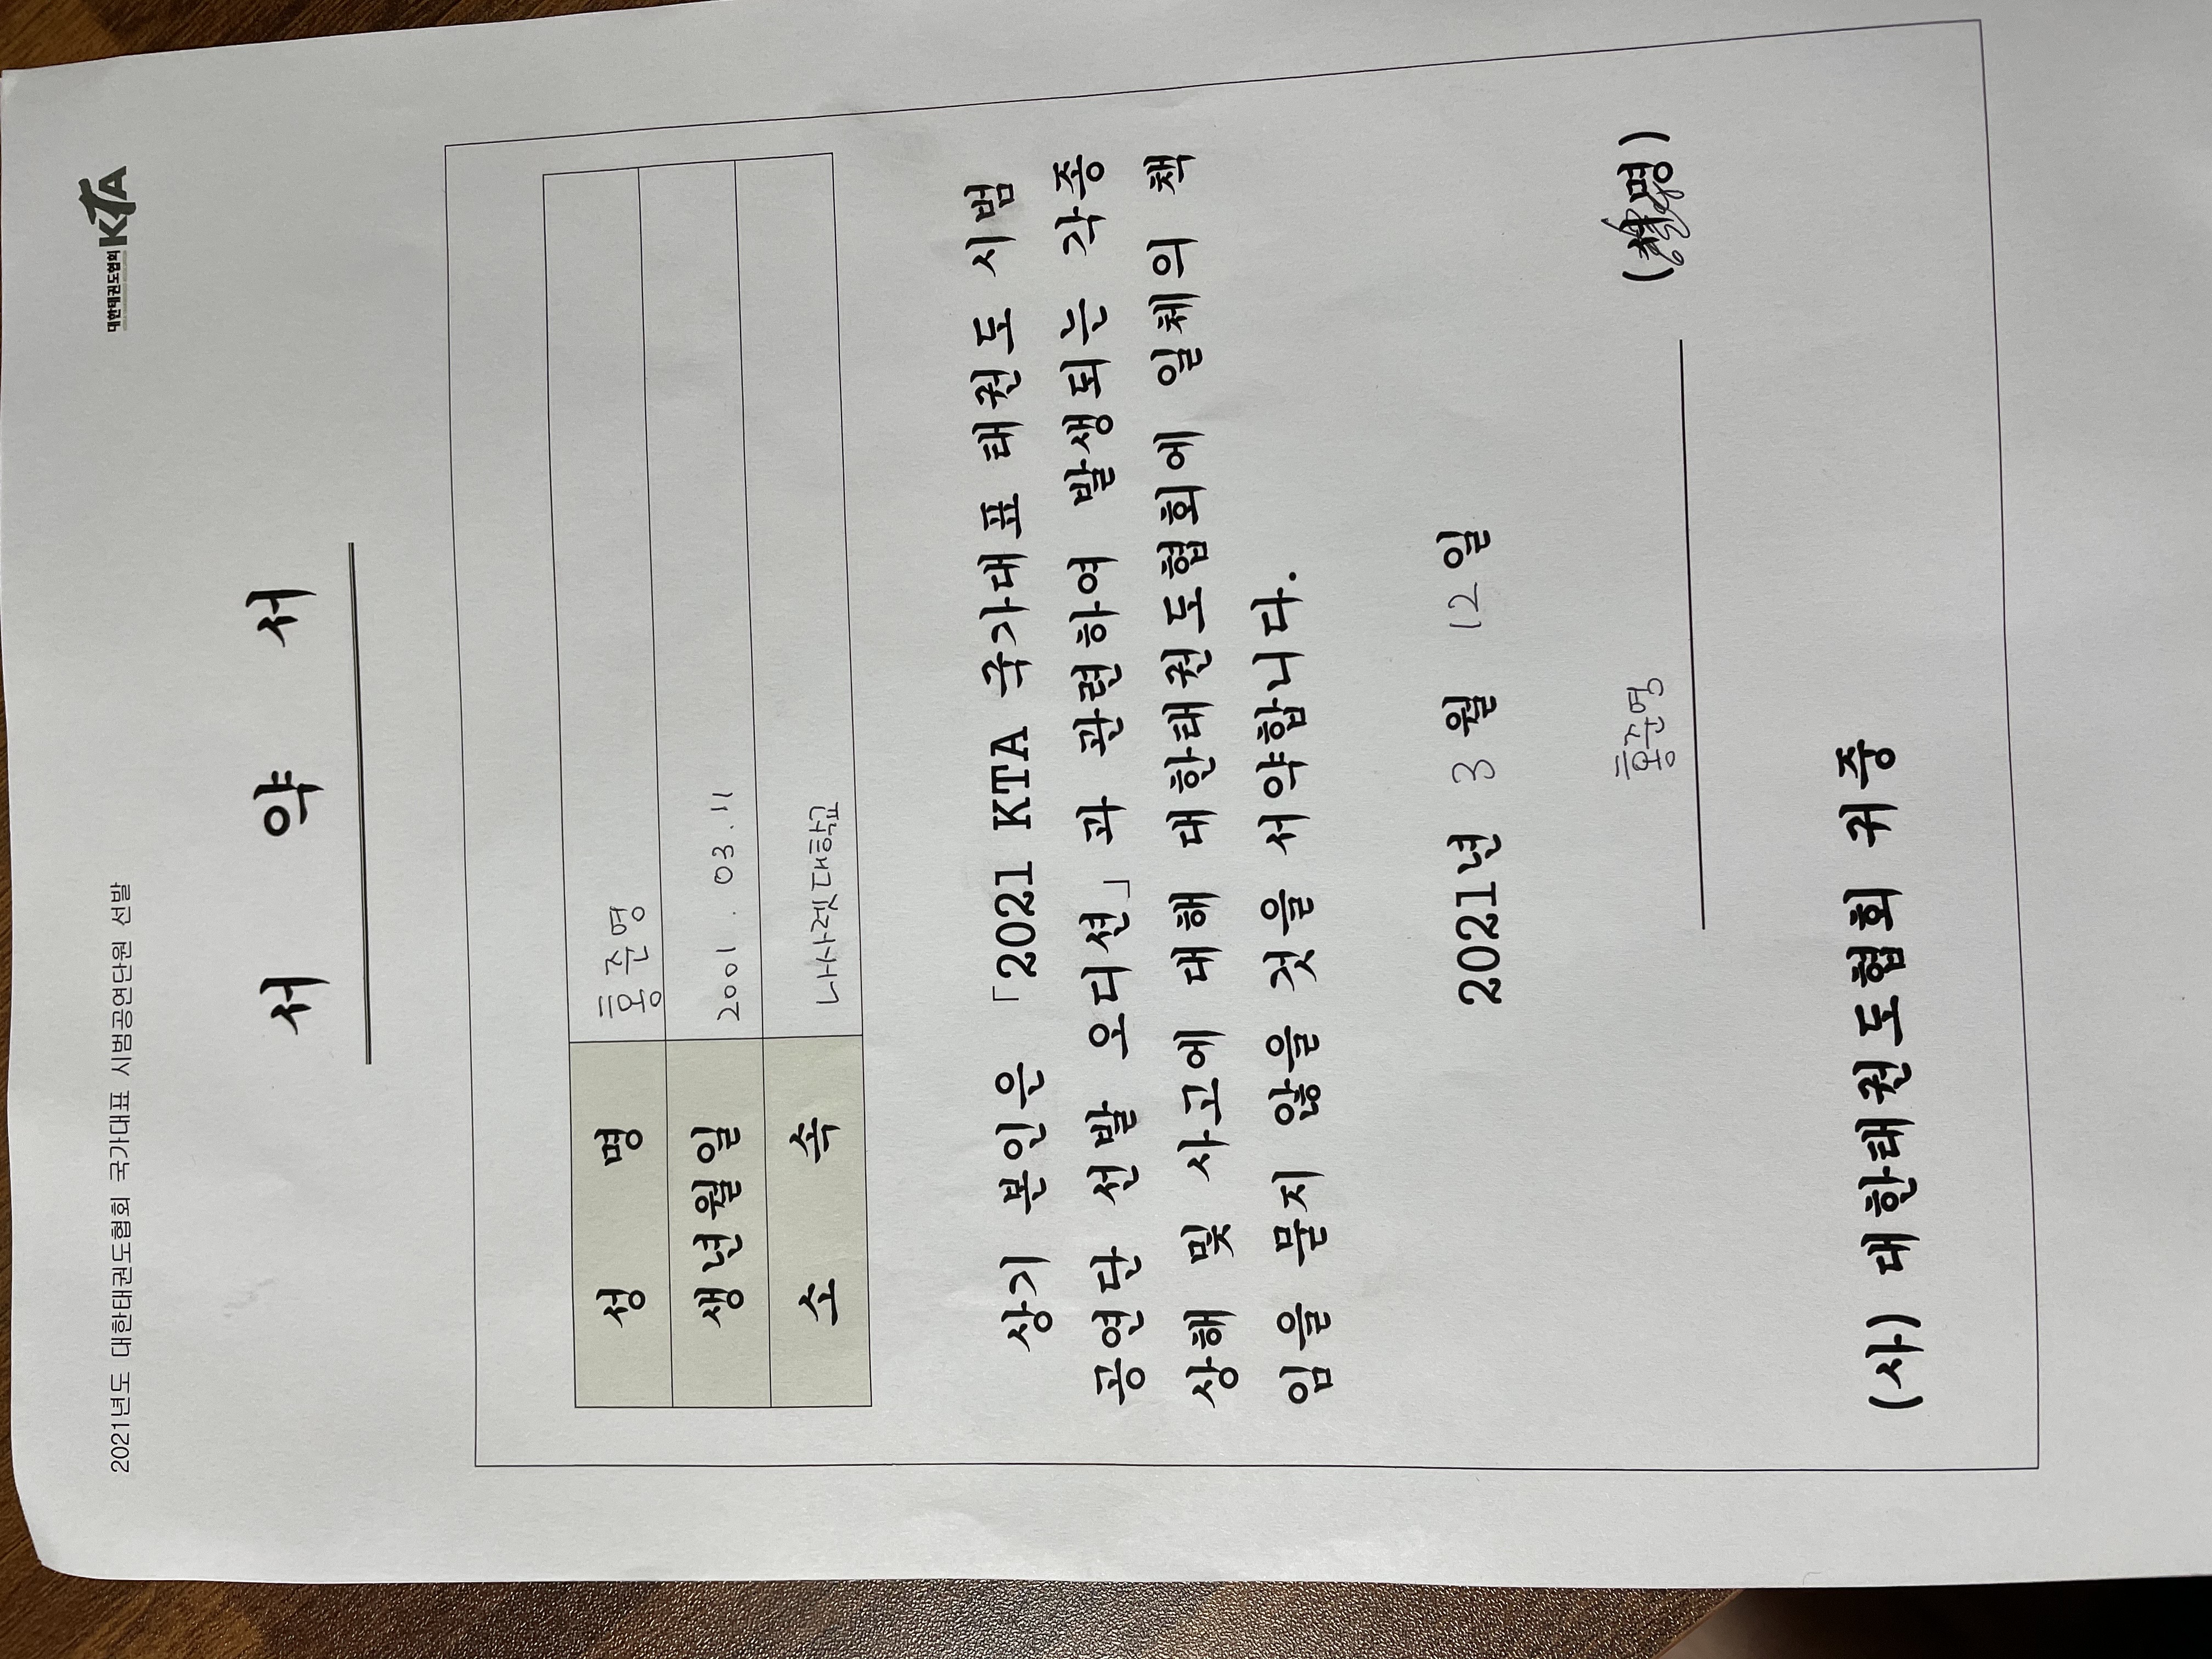 2021년도 대한태권도협회 국가대표 시범공연단원 선발
대한태권도협회 KTA
서 약 서
성 명 홍준명
생년월일 2001. 03. 11
소 속 나사렛대학교
상기 본인은 「2021 KTA 국가대표 태권도 시범
공연단 선발 오디션」과 관련하여 발생되는 각종
상해 및 사고에 대해 대한태권도협회에 일체의 책
임을 묻지 않을 것을 서약합니다.
2021년 3월 12일
홍준명 (서명)
(사) 대한태권도협회 귀중